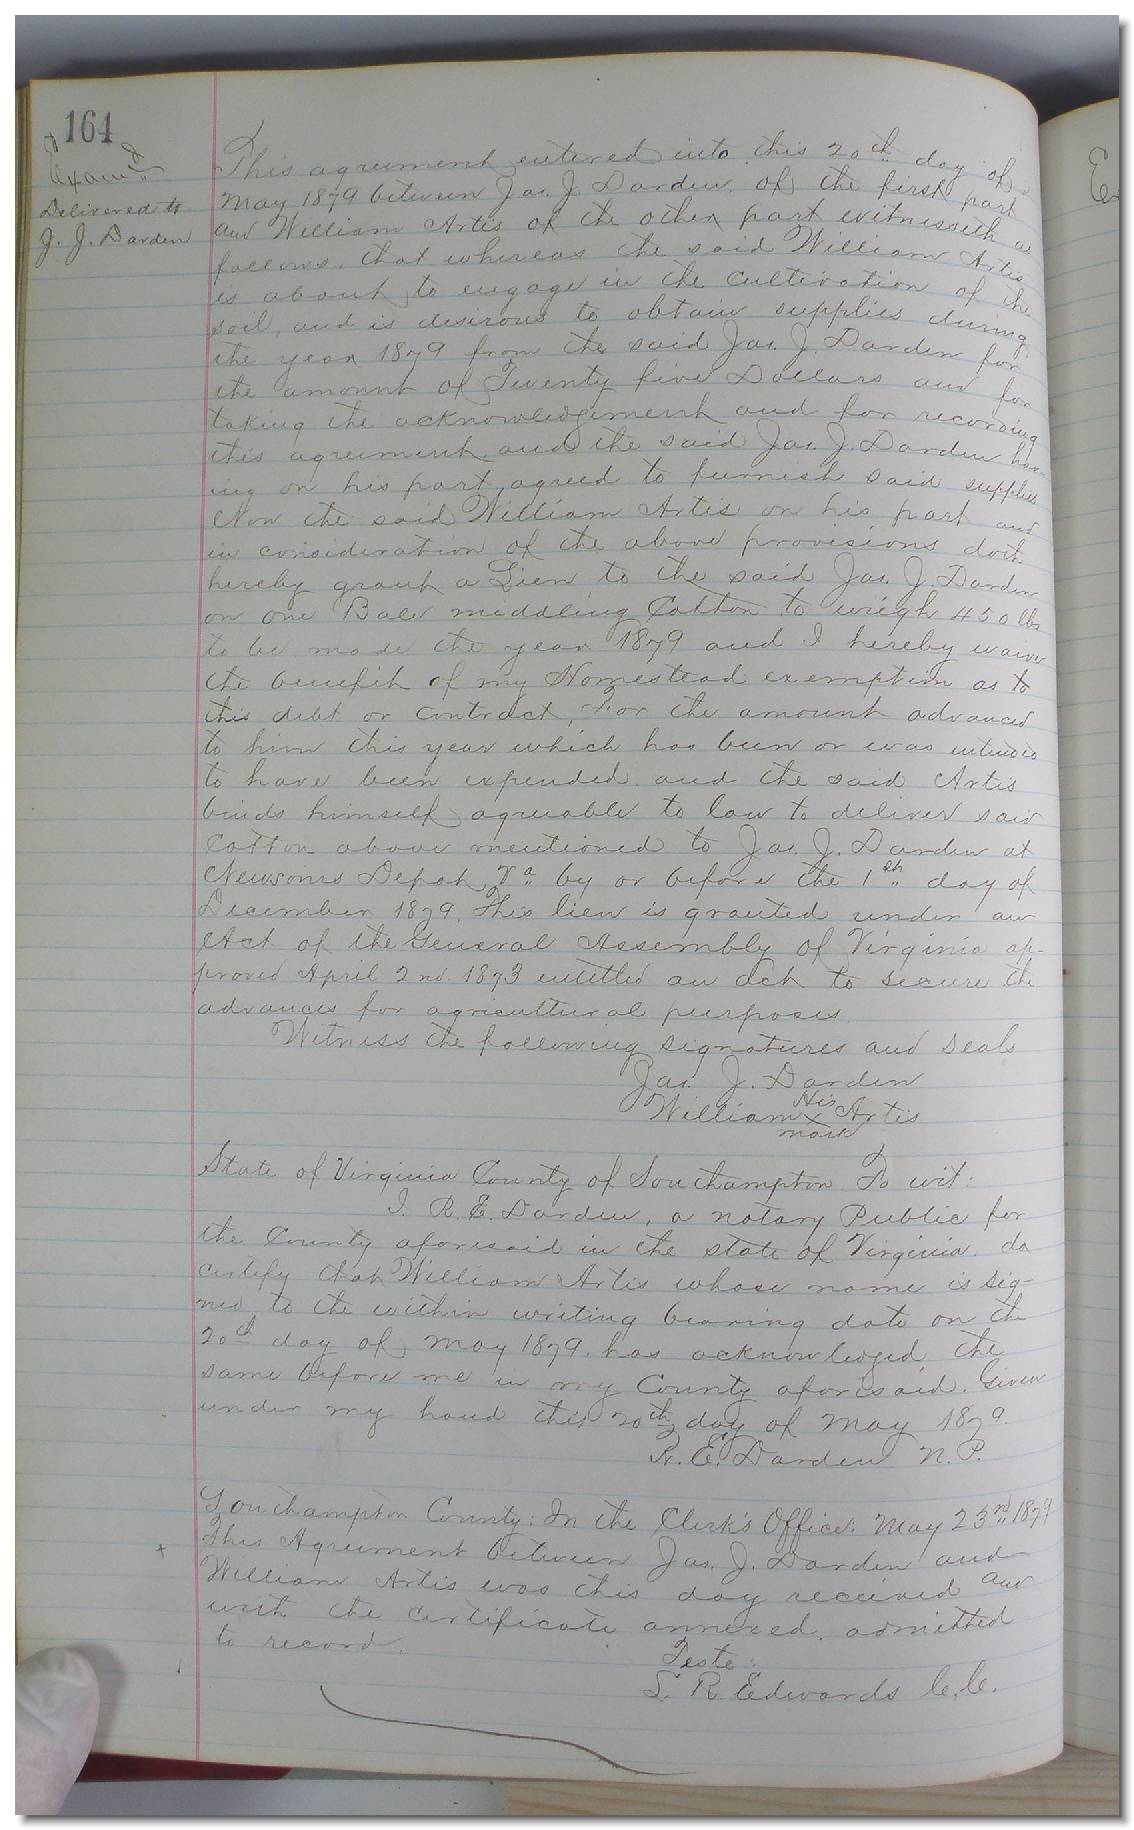 164
Exam.d
Delivered to
J. J. Darden
This agreement entered into this 20th day of
May 1879 between Jas. J. Darden, of the first part
and William Artis of the other part witnesseth as
follows. that whereas the said William Artis
is about to engage in the cultivation of the
soil, and is desirous to obtain supplies during
the year 1879 from the said Jas. J. Darden for
the amount of Twenty five Dollars and for
taking the acknowledgement and for recording
this agreement. and the said Jas. J. Darden hav
ing on his part agreed to furnish said supplies
Now the said William Artis on his part and
in consideration of the above provisions doth
hereby grant a Lien to the said Jas. J. Darden
on one Bale middling Cotton to weigh 450 lbs
to be made the year 1879 and I hereby waive
the benefit of my Homestead exemption as to
this debt or contract, For the amount advanced
to him this year which has been or was intended
to have been expended. and the said Artis
binds himself agreeable to law to deliver said
Cotton above mentioned to Jas. J. Darden at
Newsoms Depot, Va. by or before the 1th day of
December 1879, This lien is granted under an
Act of the General Assembly of Virginia ap-
proved April 2nd 1873 entitled an act to secure the
advances for agricultural purposes.
Witness the following signatures and seals
Jas. J. Darden
His
William X Artis
mark
State of Virginia County of Southampton To wit:
I. R. E. Darden, a notary Public for
the County aforesaid in the state of Virginia. do
certify that William Artis whose name is sig-
ned to the within writing bearing date on the
20th day of May 1879. has acknowledged the
same before me in my County aforesaid. Given
under my hand this 20th day of May 1879.
R. E. Darden N. P.
Southampton County: In the Clerk's Office: May 23rd 1879
This Agreement between Jas. J. Darden and
William Artis was this day received and
with the certificate annexed. admitted
to record.
Teste:
S. R. Edwards C. C.